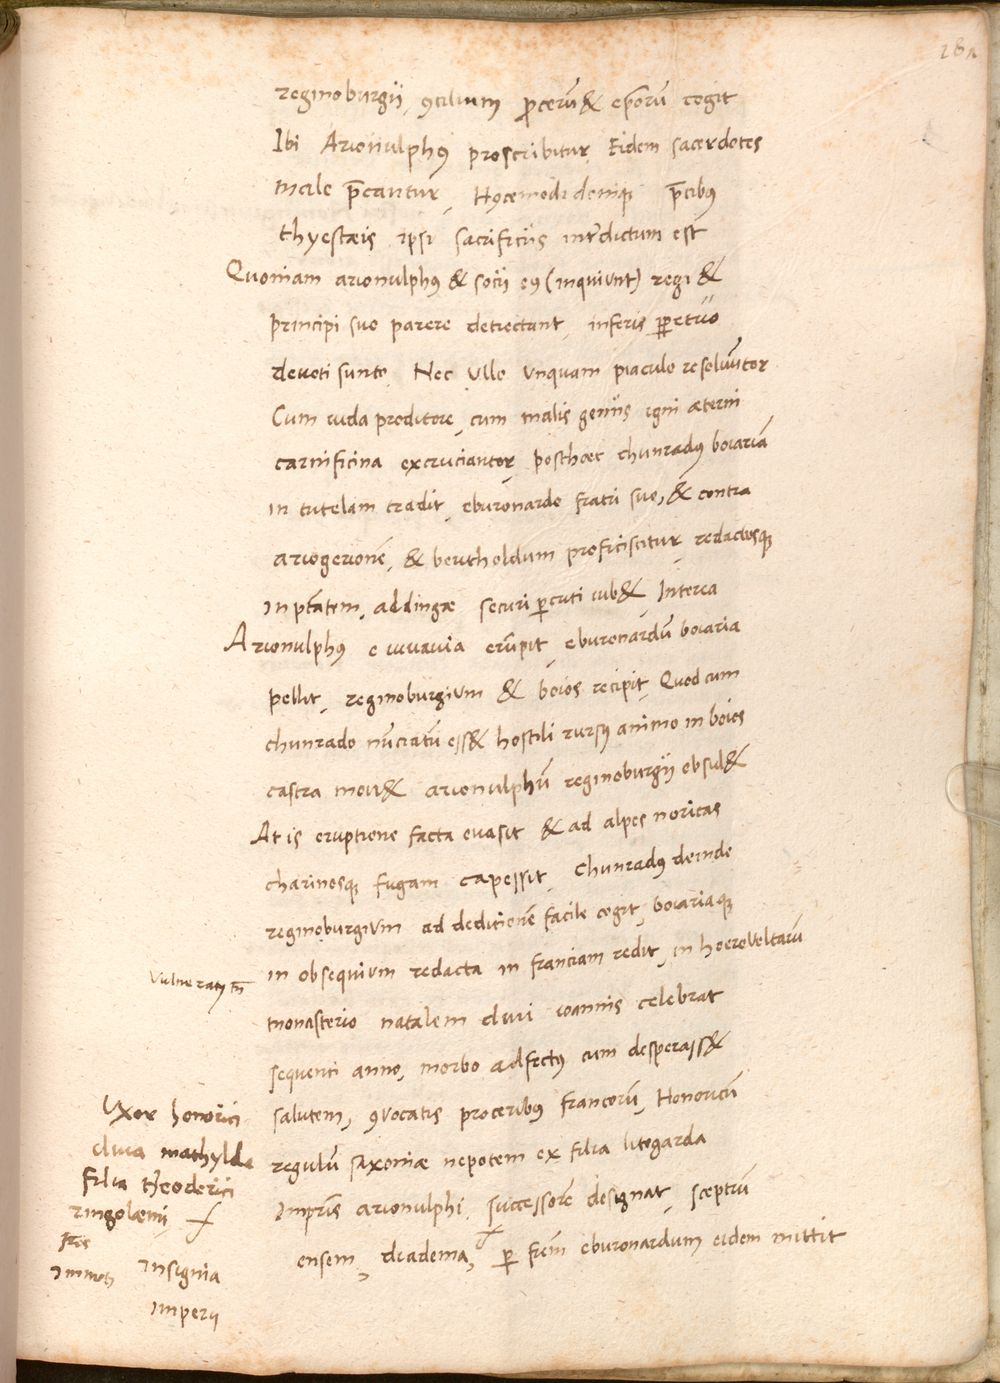 reginoburgij, ꝯcilium ꝓcerū & ep̄orū cogit
Ibi Arionulphꝰ proscribitur Eidem sacerdotes
male p̄cantur, Hꝰcemodi deniqꝫ p̄cibꝰ
thyestæis ipsi sacrificiis interdictum est
Quoniam arionulphꝰ & socij eꝰ (inquiunt) regi &
principi suo parere detrectant, inferis ꝑpetuo
devoti sunto, Nec Ullo Unquam piaculo resoluuntor
Cum iuda proditore, cum malis geniis igni æterni
carnificina excruciantor, posthæc chunradꝰ boiariā
in tutelam tradit, eburonardo fratri suo, & contra
ariogerionē, & berctholdum proficiscitur, redactosqꝫ
in ptātem, addingæ securi ꝑcuti iub&, Interea
Arionulphꝰ e iuuauia erūpit, eburonardū boiaria
pellit, reginoburgium & boios recipit, Quod cum
chunrado nūciatū ess& hostili rursꝰ animo in boios
castra mou& arionulphū reginoburgij obsid&
At is eruptione facta evasit & ad alpes noricas
charinosqꝫ fugam capessit, Chunradꝰ deinde
reginoburgium ad deditionē facile cogit, boiariaqꝫ
in obsequium redacta in franciam redit, in hoeroveltarū
monasterio natalem divi ioannis celebrat
sequenti anno, morbo adfectꝰ cum desperass&
salutem, ꝯvocatis proceribꝰ francorū, Honoricū
regulū saxoniæ nepotem ex filia litogarda
Imprīs arionulphi, successorē designat, sceptrū
ensem, diadema, ꝑ frēm eburonardum eidem mittit
Vulneratꝰ tn̄
Uxor honorici
diua mathylda
filia theoderici
ringolæmi
insignia
imperij